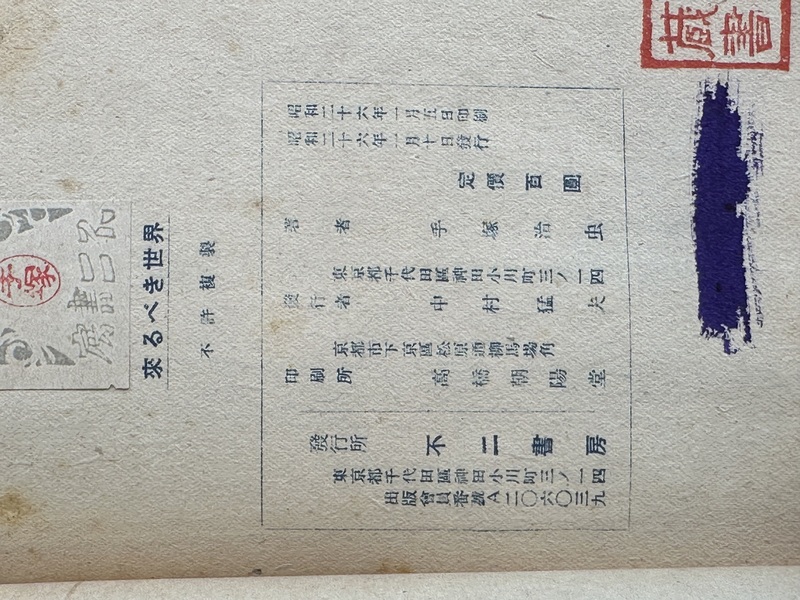 不二書房
手塚
來るべき世界
不許複製
昭和二十六年一月五日印刷
昭和二十六年一月十日發行
定價百圓
著者 手塚治虫
東京都千代田區神田小川町三ノ一四
發行者 中村猛夫
京都市下京區松原通柳馬場角
印刷所 高橋朝陽堂
發行所 不二書房
東京都千代田區神田小川町三ノ一四
出版會員番號A二〇六〇三九
蔵書